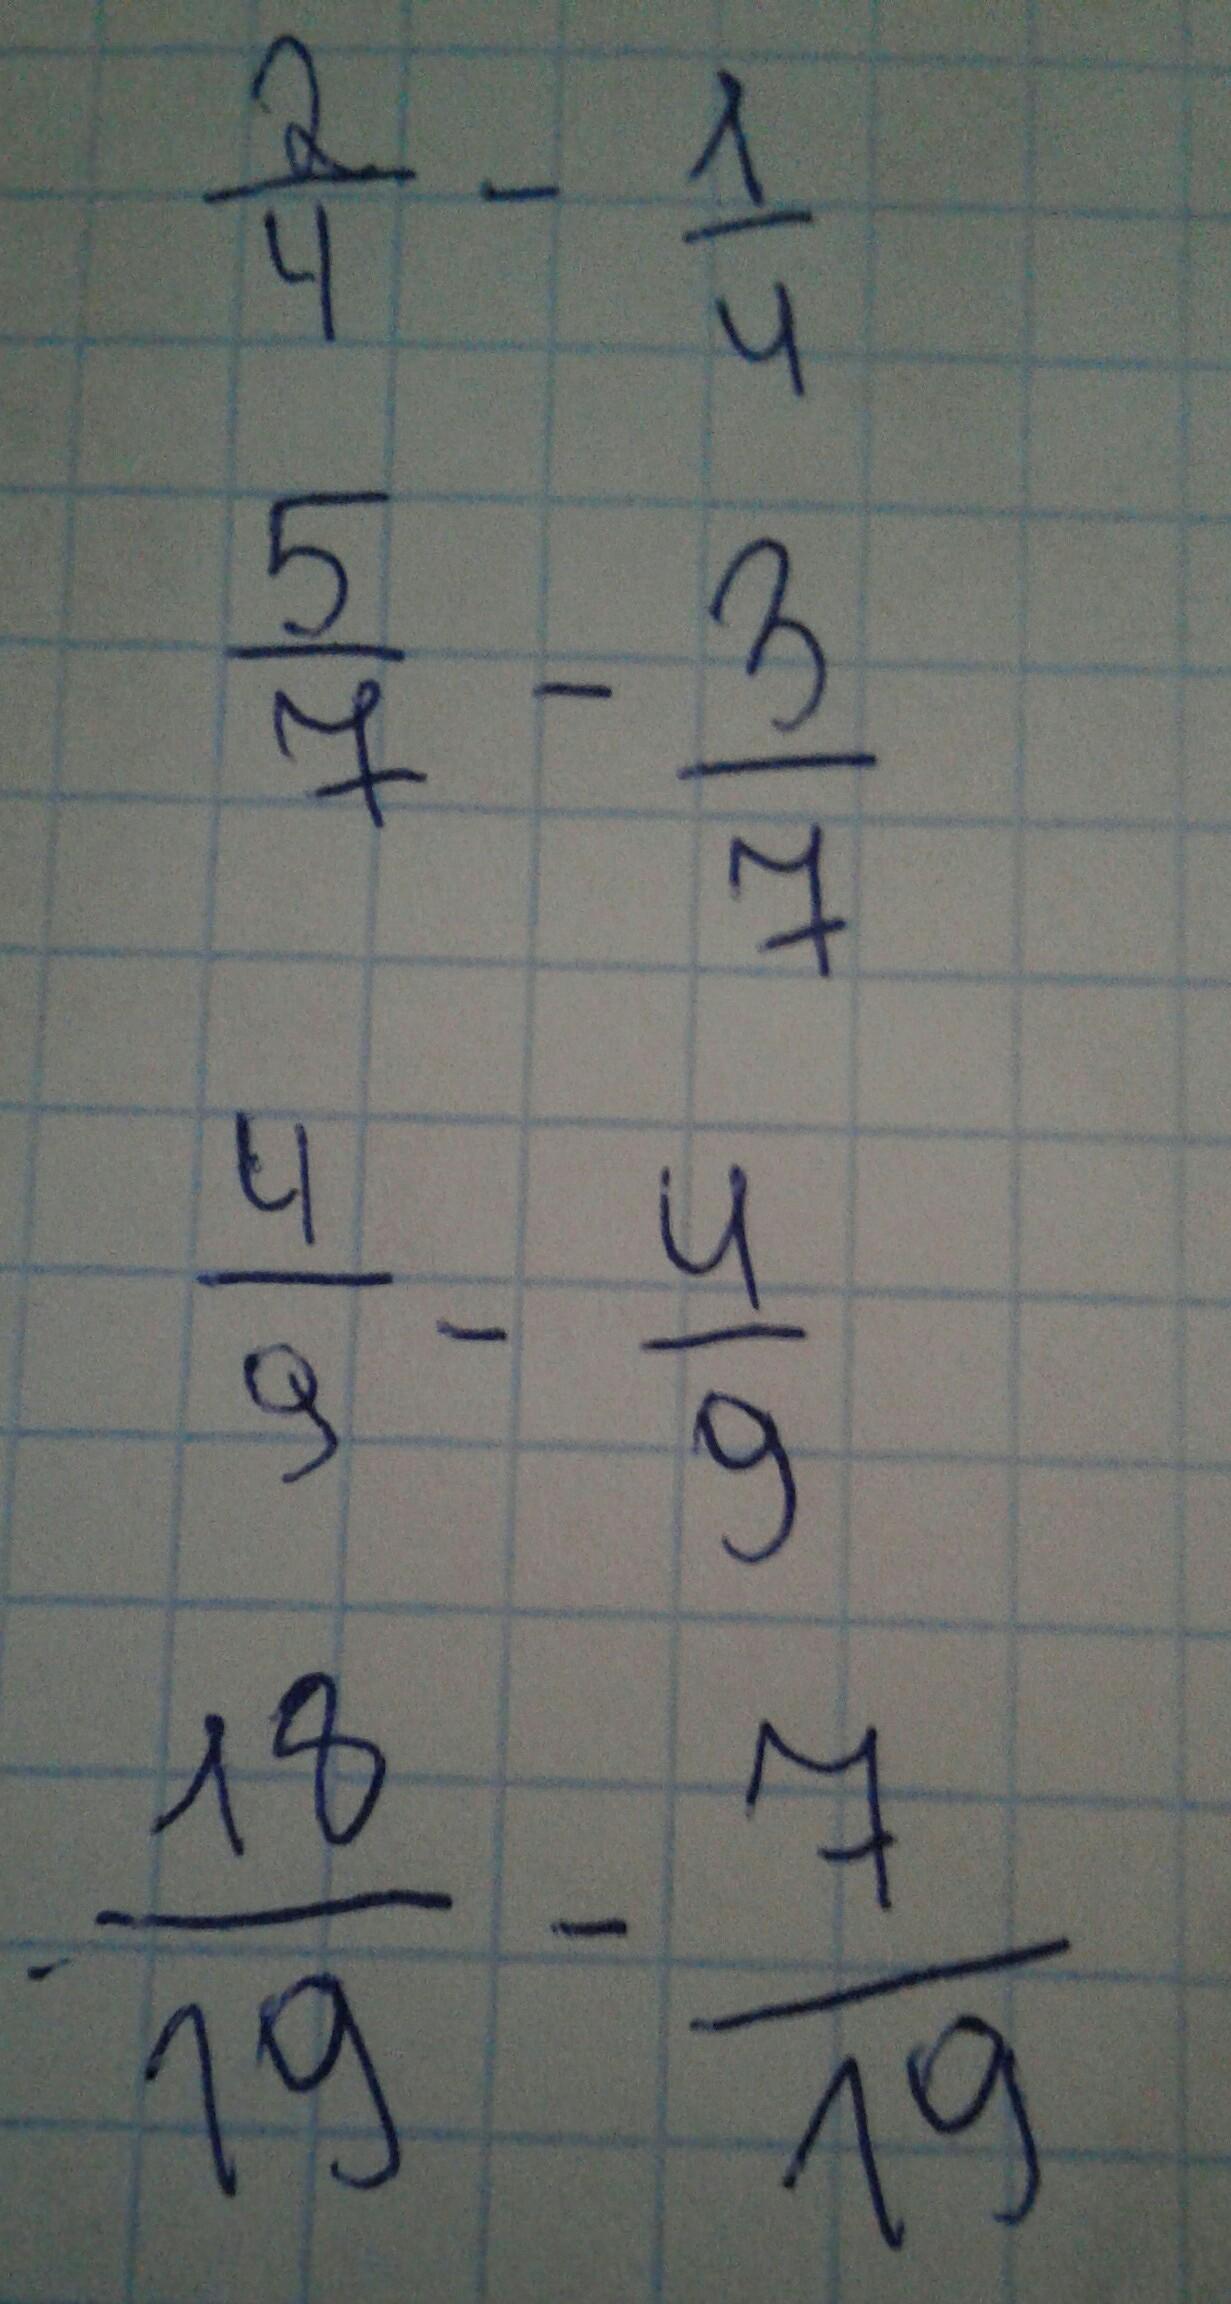 2/4 - 1/4
5/7 - 3/7
4/9 - 4/9
18/19 - 7/19